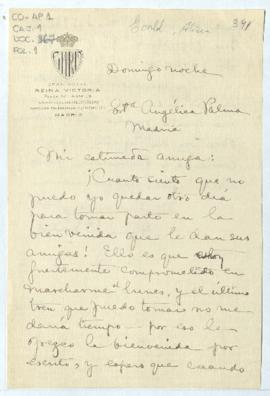 CO-AP.1
CAJ. 1
DOC. 367
FOL. 1
Gould, Alice
391
GRAN HOTEL
REINA VICTORIA
MADRID
Domingo noche
Srta Angélica Palma
Madrid
Mi estimada amiga:
¡Cuanto siento que no
puedo yo quedar otro día
para tomar parte en la
bienvenida que le dan sus
amigas! Ello es que estoy
fuertemente comprometida en
marcharme el lunes, y el último
tren que puedo tomar no me
daría tiempo - por eso le
ofrezco la bienvenida por
escrito, y espero que cuando